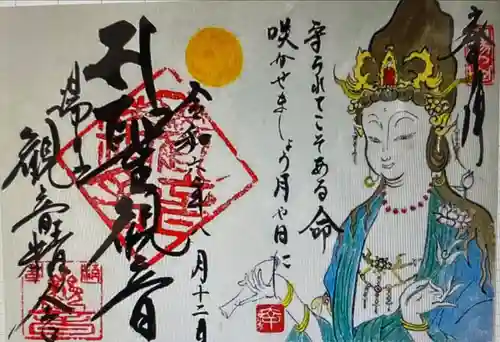 奉拝
守られてこそある命
咲かせましょう月や日に
令和六年八月十二日
聖観音
湯上
観音精舎